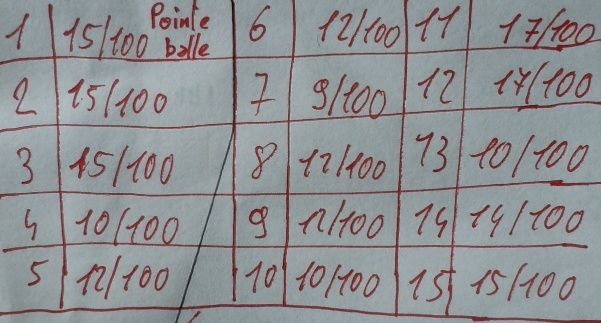 1 15/100 Pointe balle 6 12/100 11 17/100
2 15/100 7 9/100 12 17/100
3 15/100 8 12/100 13 10/100
4 10/100 9 12/100 14 14/100
5 12/100 10 10/100 15 15/100